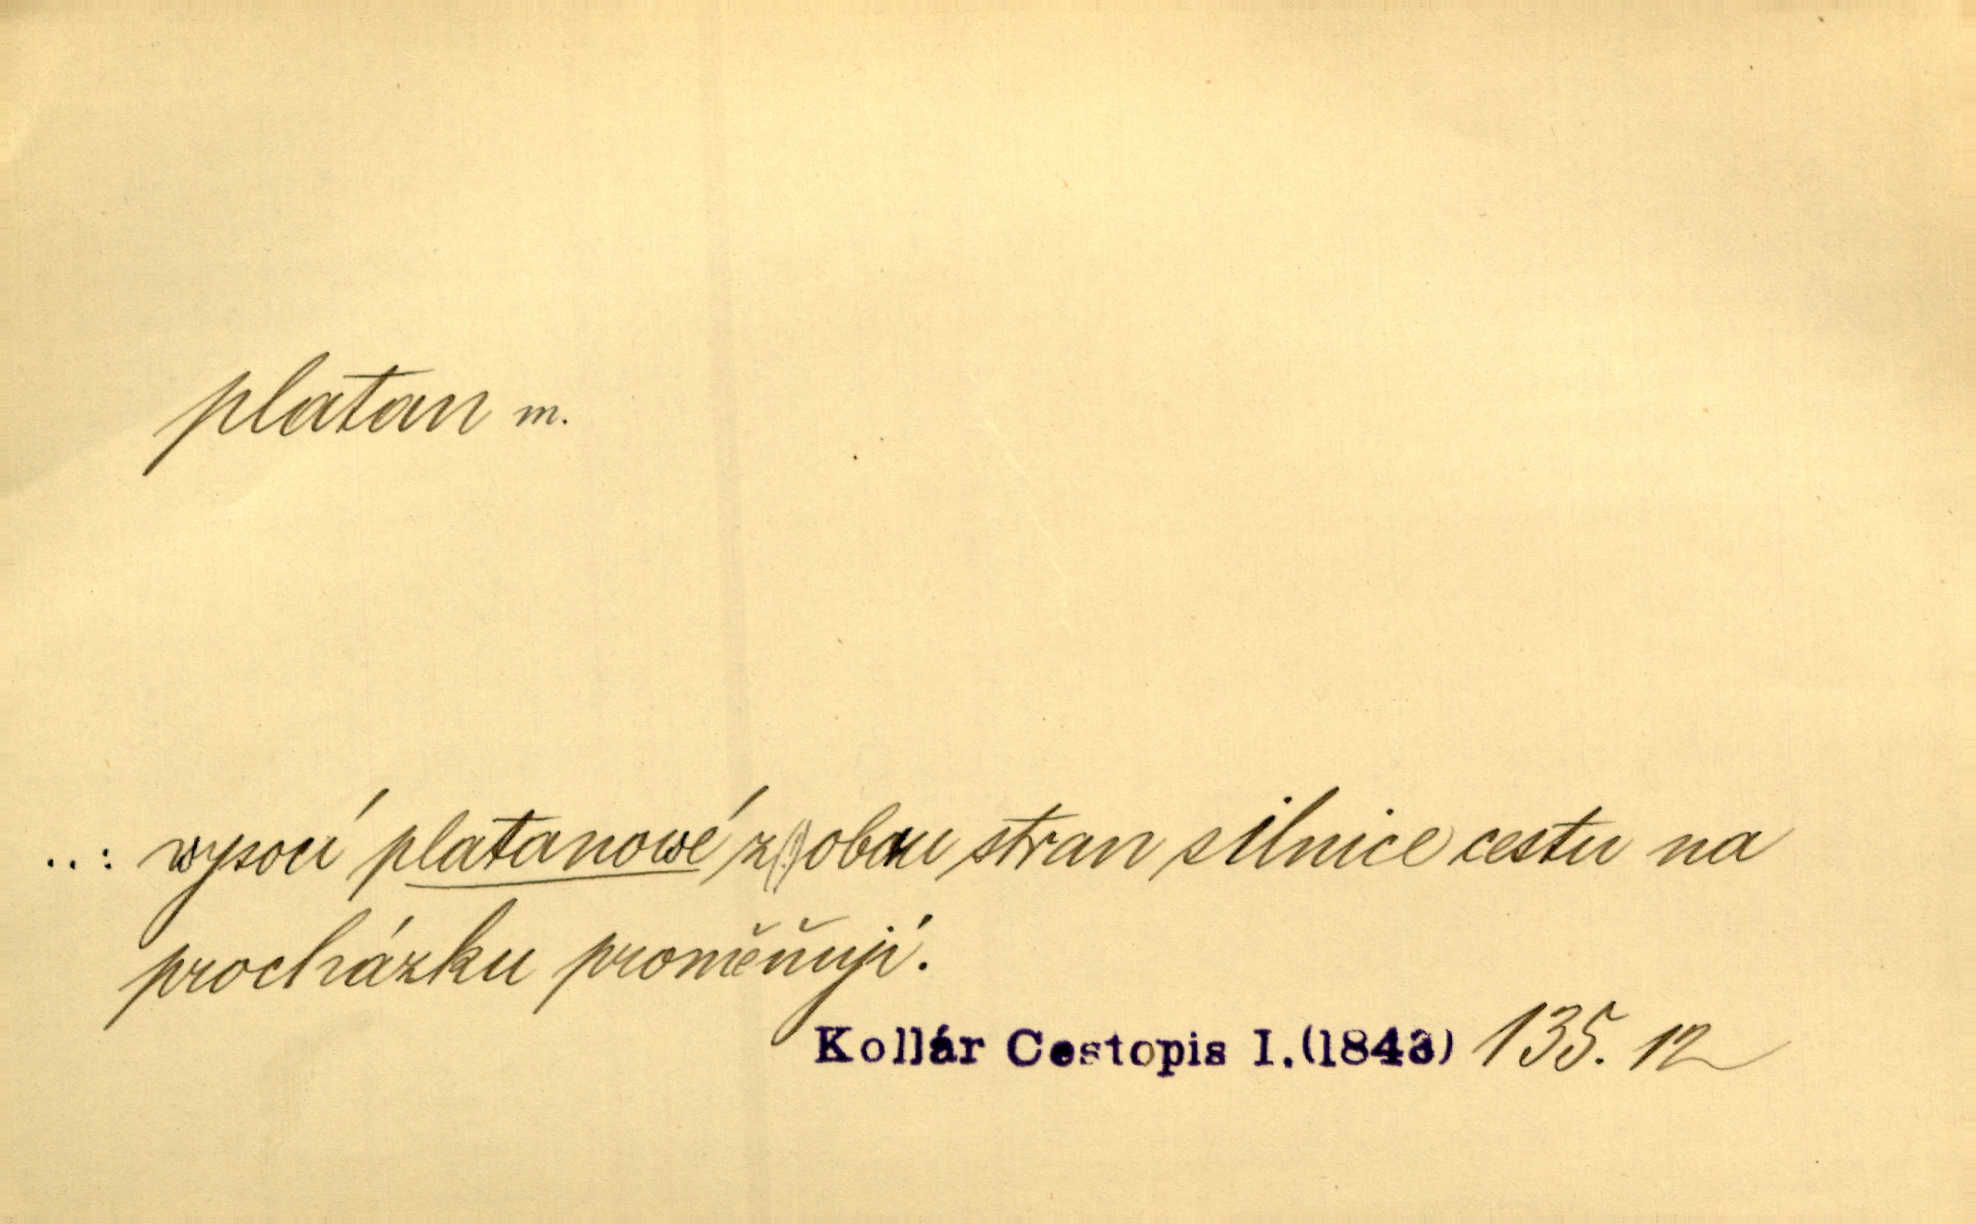 platan m.
..: wysocí platanowé z obau stran silnice cestu na
procházku proměňují.
Kollár Cestopis I.(1843) 135. 12